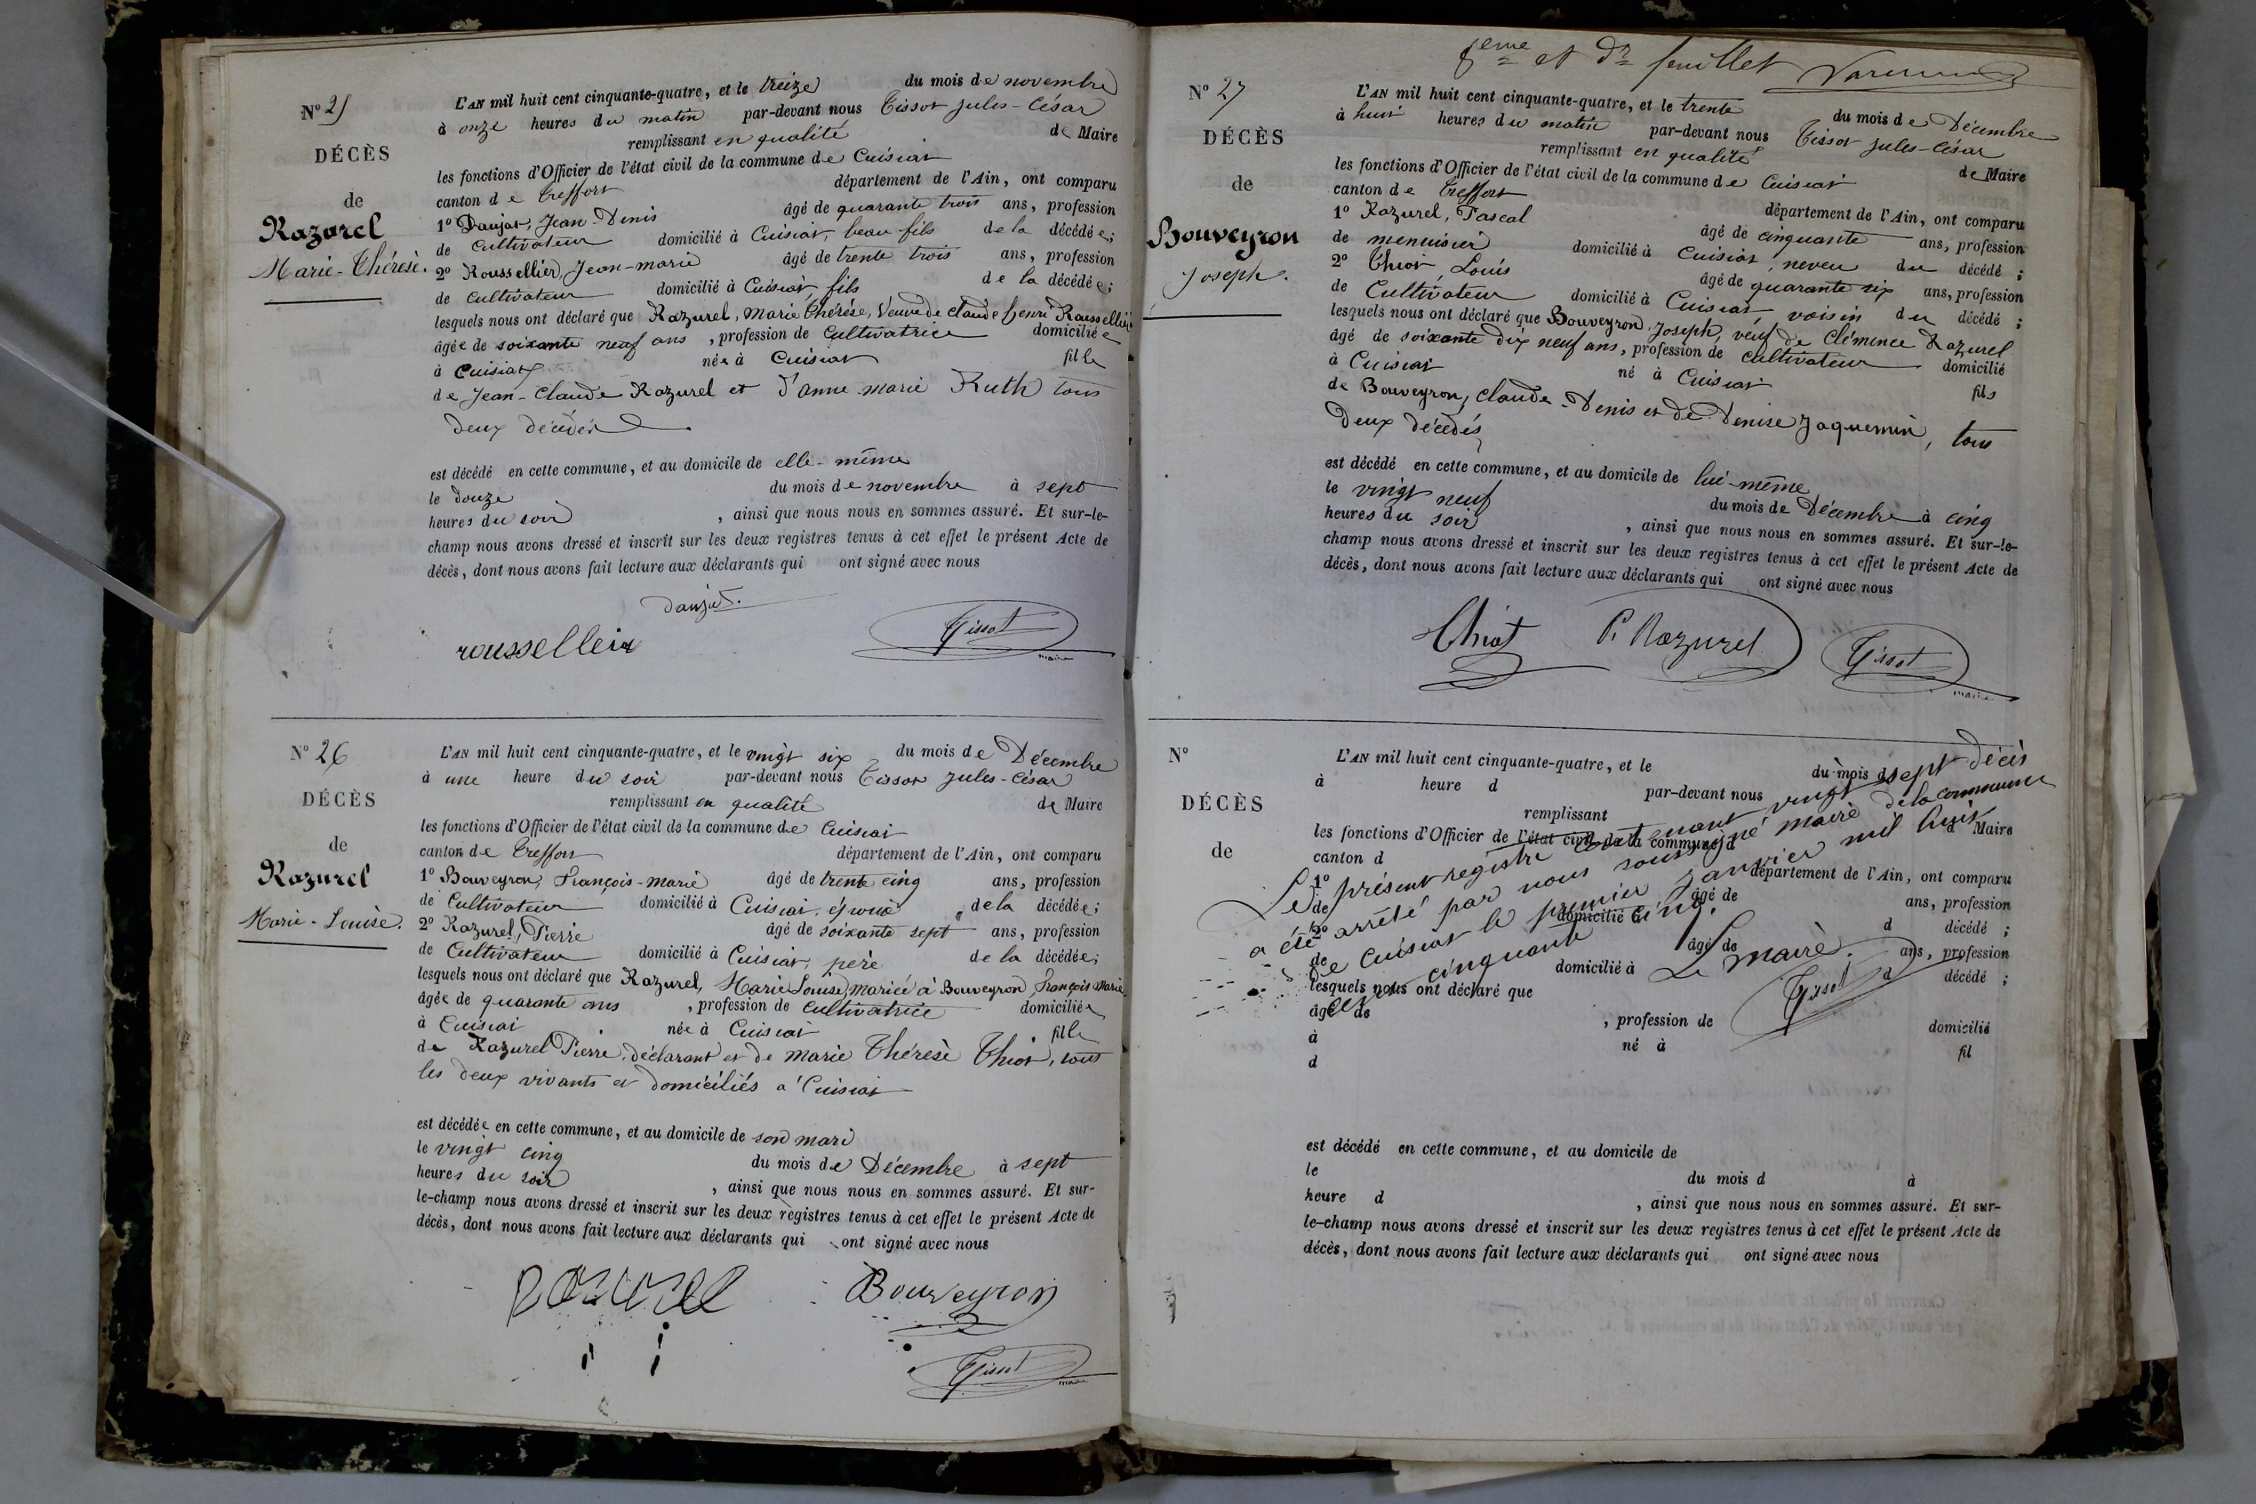 N° 25
DÉCÈS
de
Razurel
Marie-Thérèse.
L'AN mil huit cent cinquante-quatre, et le treize du mois de novembre
à onze heures du matin par-devant nous Tissot Jules-César
remplissant en qualité de Maire
les fonctions d'Officier de l'état civil de la commune de Cuisiat
canton de Treffort département de l'Ain, ont comparu
1° Daujat, Jean-Denis âgé de quarante trois ans, profession
de Cultivateur domicilié à Cuisiat, beau-fils de la décédée;
2° Roussellier, Jean-marie âgé de trente trois ans, profession
de Cultivateur domicilié à Cuisiat, fils de la décédée;
lesquels nous ont déclaré que Razurel, Marie Thérèse, Veuve de Claude henri Roussellier
âgée de soixante neuf ans, profession de Cultivatrice domiciliée
à Cuisiat née à Cuisiat fille
de Jean-Claude Razurel et d'anne-marie Ruth tous
deux décédés
est décédé en cette commune, et au domicile de elle-même
le douze du mois de novembre à sept
heures du soir, ainsi que nous nous en sommes assuré. Et sur-le-
champ nous avons dressé et inscrit sur les deux registres tenus à cet effet le présent Acte de
décès, dont nous avons fait lecture aux déclarants qui ont signé avec nous
daujat.
roussellier
Tissot
maire
N° 26
DÉCÈS
de
Razurel
Marie-Louise.
L'AN mil huit cent cinquante-quatre, et le vingt six du mois de Décembre
à une heure du soir par-devant nous Tissot Jules-César
remplissant en qualité de Maire
les fonctions d'Officier de l'état civil de la commune de Cuisiat
canton de Treffort département de l'Ain, ont comparu
1° Bouveyron, François-marie âgé de trente cinq ans, profession
de Cultivateur domicilié à Cuisiat, époux de la décédée;
2° Razurel, Pierre âgé de soixante sept ans, profession
de Cultivateur domicilié à Cuisiat, père de la décédée;
lesquels nous ont déclaré que Razurel, Marie Louise, mariée à Bouveyron, François Marie
âgée de quarante ans, profession de Cultivatrice domiciliée
à Cuisiat née à Cuisiat fille
de Razurel Pierre, déclarant et de marie Thérèse Thiot, tous
les deux vivants et domiciliés a Cuisiat
est décédée en cette commune, et au domicile de son mari
le vingt cinq du mois de Décembre à sept
heures du soir, ainsi que nous nous en sommes assuré. Et sur-
le-champ nous avons dressé et inscrit sur les deux registres tenus à cet effet le présent Acte de
décès, dont nous avons fait lecture aux déclarants qui ont signé avec nous
Razurel Bouveyron
Tissot
maire
8eme et dr feuillet
N° 27
DÉCÈS
de
Bouveyron
Joseph.
L'AN mil huit cent cinquante-quatre, et le trente du mois de Décembre
à huit heures du matin par-devant nous Tissot Jules-César
remplissant en qualité de Maire
les fonctions d'Officier de l'état civil de la commune de Cuisiat
canton de Treffort département de l'Ain, ont comparu
1° Razurel, Pascal âgé de cinquante ans, profession
de menuisier domicilié à Cuisiat, neveu du décédé;
2° Thiot, Louis âgé de quarante six ans, profession
de Cultivateur domicilié à Cuisiat voisin du décédé;
lesquels nous ont déclaré que Bouveyron, Joseph, veuf de Clémence Razurel
âgé de soixante dix neuf ans, profession de cultivateur domicilié
à Cuisiat né à Cuisiat fils
de Bouveyron, Claude-Denis et de Denise Jaquemin, tous
deux décédés
est décédé en cette commune, et au domicile de lui-même
le vingt neuf du mois de Décembre à cinq
heures du soir, ainsi que nous nous en sommes assuré. Et sur-le-
champ nous avons dressé et inscrit sur les deux registres tenus à cet effet le présent Acte de
décès, dont nous avons fait lecture aux déclarants qui ont signé avec nous
Thiot P. Razurel Tissot
maire
N°
DÉCÈS
de
L'AN mil huit cent cinquante-quatre, et le du mois d
à heure d par-devant nous
remplissant d Maire
les fonctions d'Officier de l'état civil de la commune d
canton d département de l'Ain, ont comparu
1° âgé de ans, profession
de domicilié à d décédé;
2° âgé de ans, profession
de domicilié à d décédé;
lesquels nous ont déclaré que
âgé de, profession de domicilié
à né à fil
d
Le présent registre contenant vingt sept décès
a été arrêté par nous soussigné maire de la commune
de Cuisiat le premier Janvier mil huit
cent cinquante cinq.
Le maire.
Tissot
est décédé en cette commune, et au domicile de
le du mois d à
heure d, ainsi que nous nous en sommes assuré. Et sur-
le-champ nous avons dressé et inscrit sur les deux registres tenus à cet effet le présent Acte de
décès, dont nous avons fait lecture aux déclarants qui ont signé avec nous